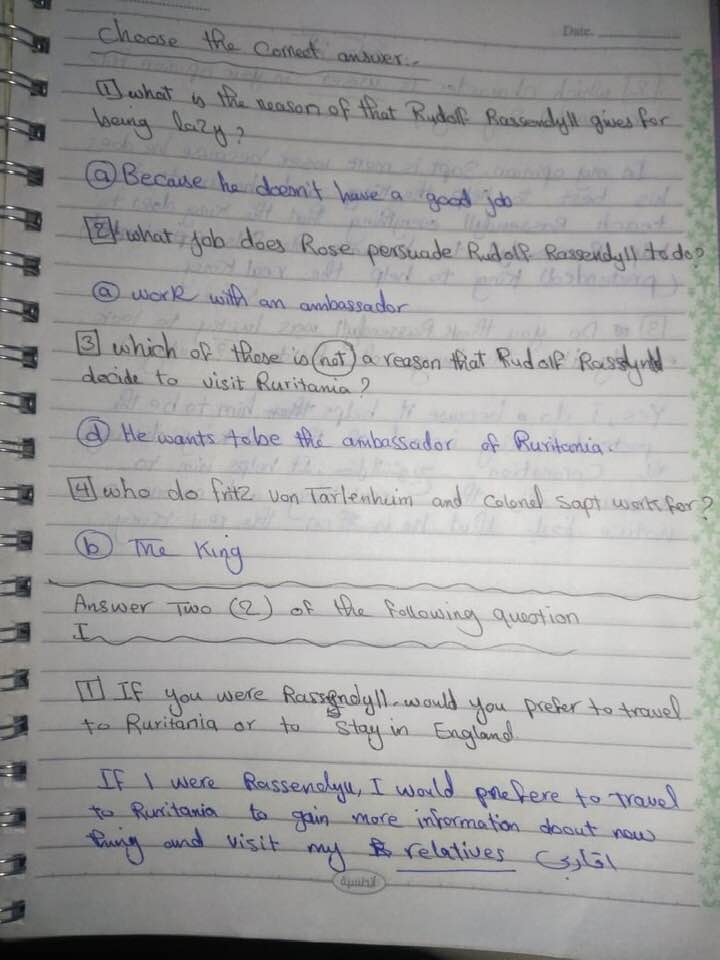 Date.
choose the correct answer:-
1 what is the reason of that Rudolf Rassendyll gives for
being lazy?
a Because he doesn't have a good job
2 what job does Rose persuade Rudolf Rassendyll to do?
a work with an ambassador
3 which of these is not a reason that Rudolf
decide to visit Ruritania?
d He wants to be the ambassador of Ruritania.
4 who do fritz von Tarlenheim and Colonel Sapt work for?
b The King
Answer Two (2) of the following question
I
1 If you were Rassendyll would you prefer to travel
to Ruritania or to stay in England
If I were Rassendyll, I would prefere to travel
to Ruritania to gain more information about new
thing and visit my relatives اقاربي